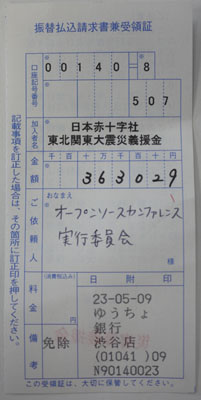 振替払込請求書兼受領証
口座記号番号
00140=8
507
加入者名
日本赤十字社
東北関東大震災義援金
金額
千百十万千百十円
363029
ご依頼人
おなまえ
オープンソースカンファレンス
実行委員会
様
料金
(消費税込み)
日附印
23-05-09
ゆうちょ
銀行
渋谷店
(01041)09
N90140023
備考
免除
記載事項を訂正した場合は、その箇所に訂正印を押してください。
この受領証は、大切に保管してください。